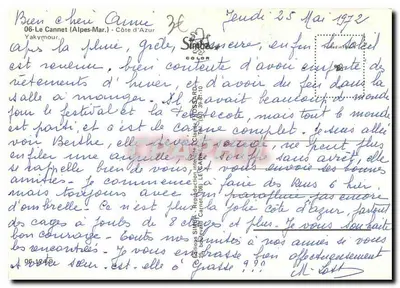 Bien chère Anne Jeudi 25 Mai 1972
06-Le Cannet (Alpes-Mar.) - Côte d'Azur
Yakymour.
Simba
COLOR
après la pluie, grêle, tonnerre, enfin le soleil
est revenu. bien contente d'avoir emporté de
vêtements d'hiver, et d'avoir du feu dans la
salle à manger. Il y avait beaucoup de monde
pour le festival et la Pentecôte, mais tout le monde
est parti, et c'est le calme complet. Je suis allée
voir Berthe, elle ne peut plus
enfiler une aiguille sans arrêt, elle
se rappelle bien de vous et vous envoie ses bonnes
amitiés. Je commence à faire des Bains 6 hier.
mais toujours avec son parapluie pas encore
d'ombrelle. Ce n'est plus la jolie côte d'azur, partout
des cages à poules de 8 étages et plus. Je vous souhaite
bon courage. Toutes nos amitiés à nos amis si vous
les rencontrez. Je vous embrasse bien affectueusement
votre sœur est-elle à Grasse ???